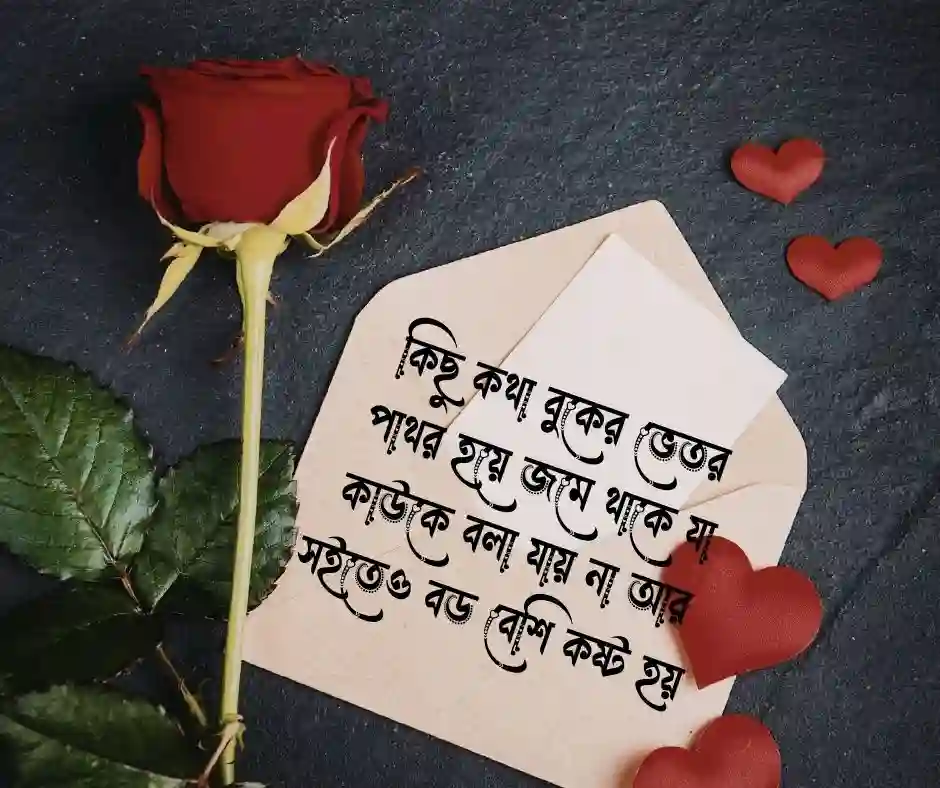 কিছু কথা বুকের ভেতর
পাথর হয়ে জমে থাকে যা
কাউকে বলা যায় না আর
সইতেও বড বেশি কষ্ট হয়